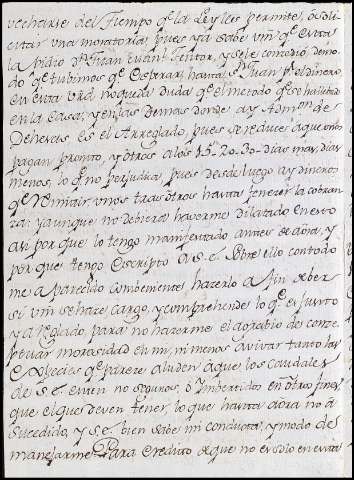 vecharse del Tiempo qe la Ley les permite, ò soli
citar una moratoria, pues ya sabe vm qe esta
la pidio Dn Juan Tentor, y se le concedio, demo
do qe tubimos qe esperar, hasta Sn Juan pr el dinero,
en esta vrd no queda duda qe el metodo qe es havitual
en la Casa, y en las demas donde ay Admon de
Dehesas es el Arreglado, pues se reduce à que unos
pagan pronto, y otros à los 15 = 20. 30 = dias mas, dias
menos, lo qe no perjudica, pues desde luego ay dineros
qe remitir unos tras otros hasta fenecer la cobran
za: y aunque no debiera haverme dilatado en esto
asi por que lo tengo manifestado antes de aora, y
por que tengo escripto à S. E. sobre ello con todo
me à parecido combeniente hacerlo à fin de ber
si vm se hace cargo, y comprehende lo qe es justo
y arreglado, para no hacerme el agrabio de conze
ptuar morosidad en mi, ni menos avivar tanto las
especies qe parece aluden à que los caudales
de S. E. esten no seguros, ò imbertidos en otro fin,
que el que deven tener, lo que hasta aora no à
sucedido, y S. E. bien sabe mi conducta, y modo de
manejarme. Para credito de que no es solo en esta